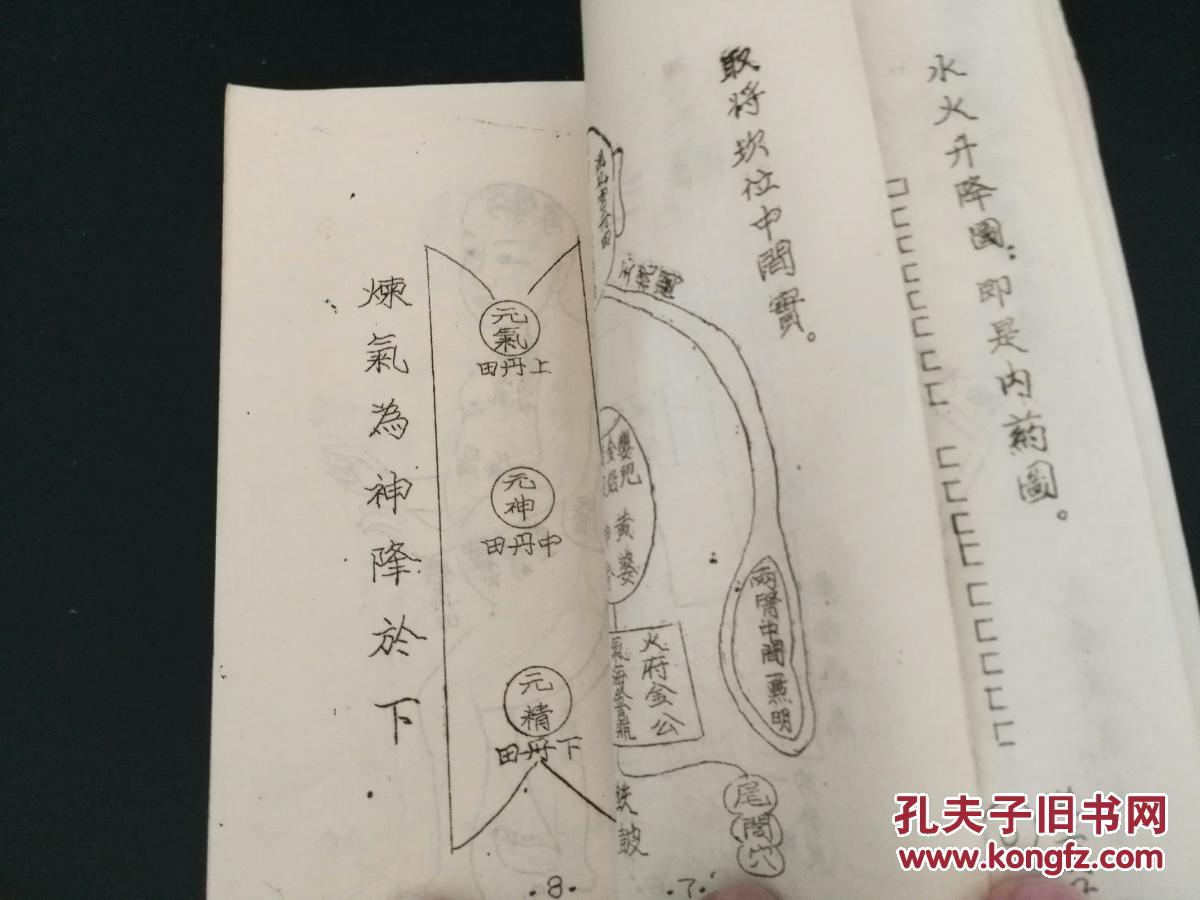 水火升降圖：即是内葯圖。
取将坎位中間實。
兩腎中間一點明
嬰兒
黄婆
火府金公
氣海金鼎
尾閭穴
鉄鼓
.7.
煉氣為神降於下
元氣
田丹上
元神
田丹中
元精
田丹下
.8.
孔夫子旧书网
www.kongfz.com